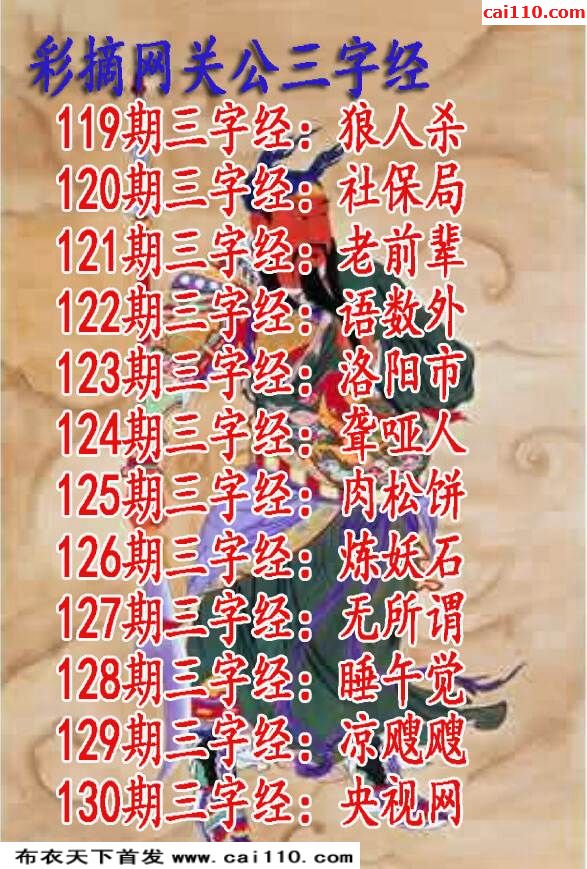 cai110.com
彩摘网关公三字经
119期三字经：狼人杀
120期三字经：社保局
121期三字经：老前辈
122期三字经：语数外
123期三字经：洛阳市
124期三字经：聋哑人
125期三字经：肉松饼
126期三字经：炼妖石
127期三字经：无所谓
128期三字经：睡午觉
129期三字经：凉飕飕
130期三字经：央视网
布衣天下首发 www.cai110.com